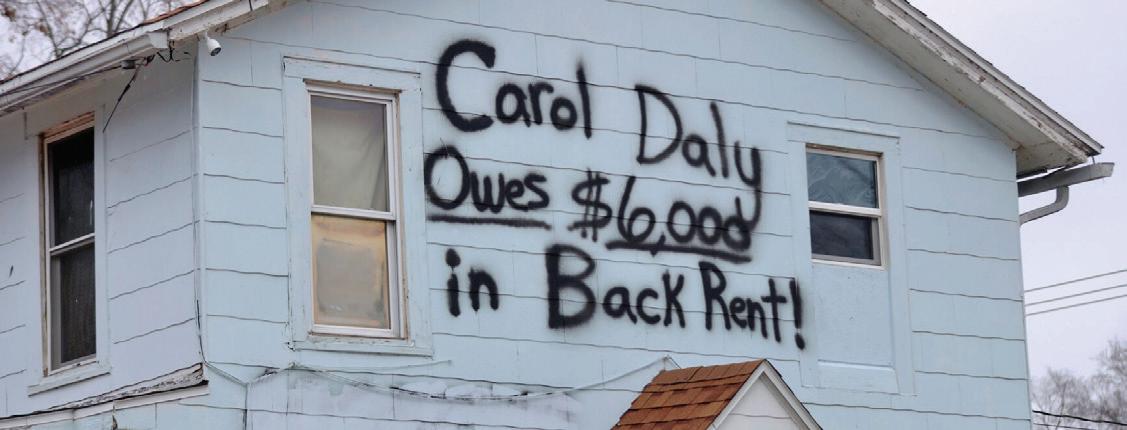 Carol Daly
Owes $6,000
in Back Rent!